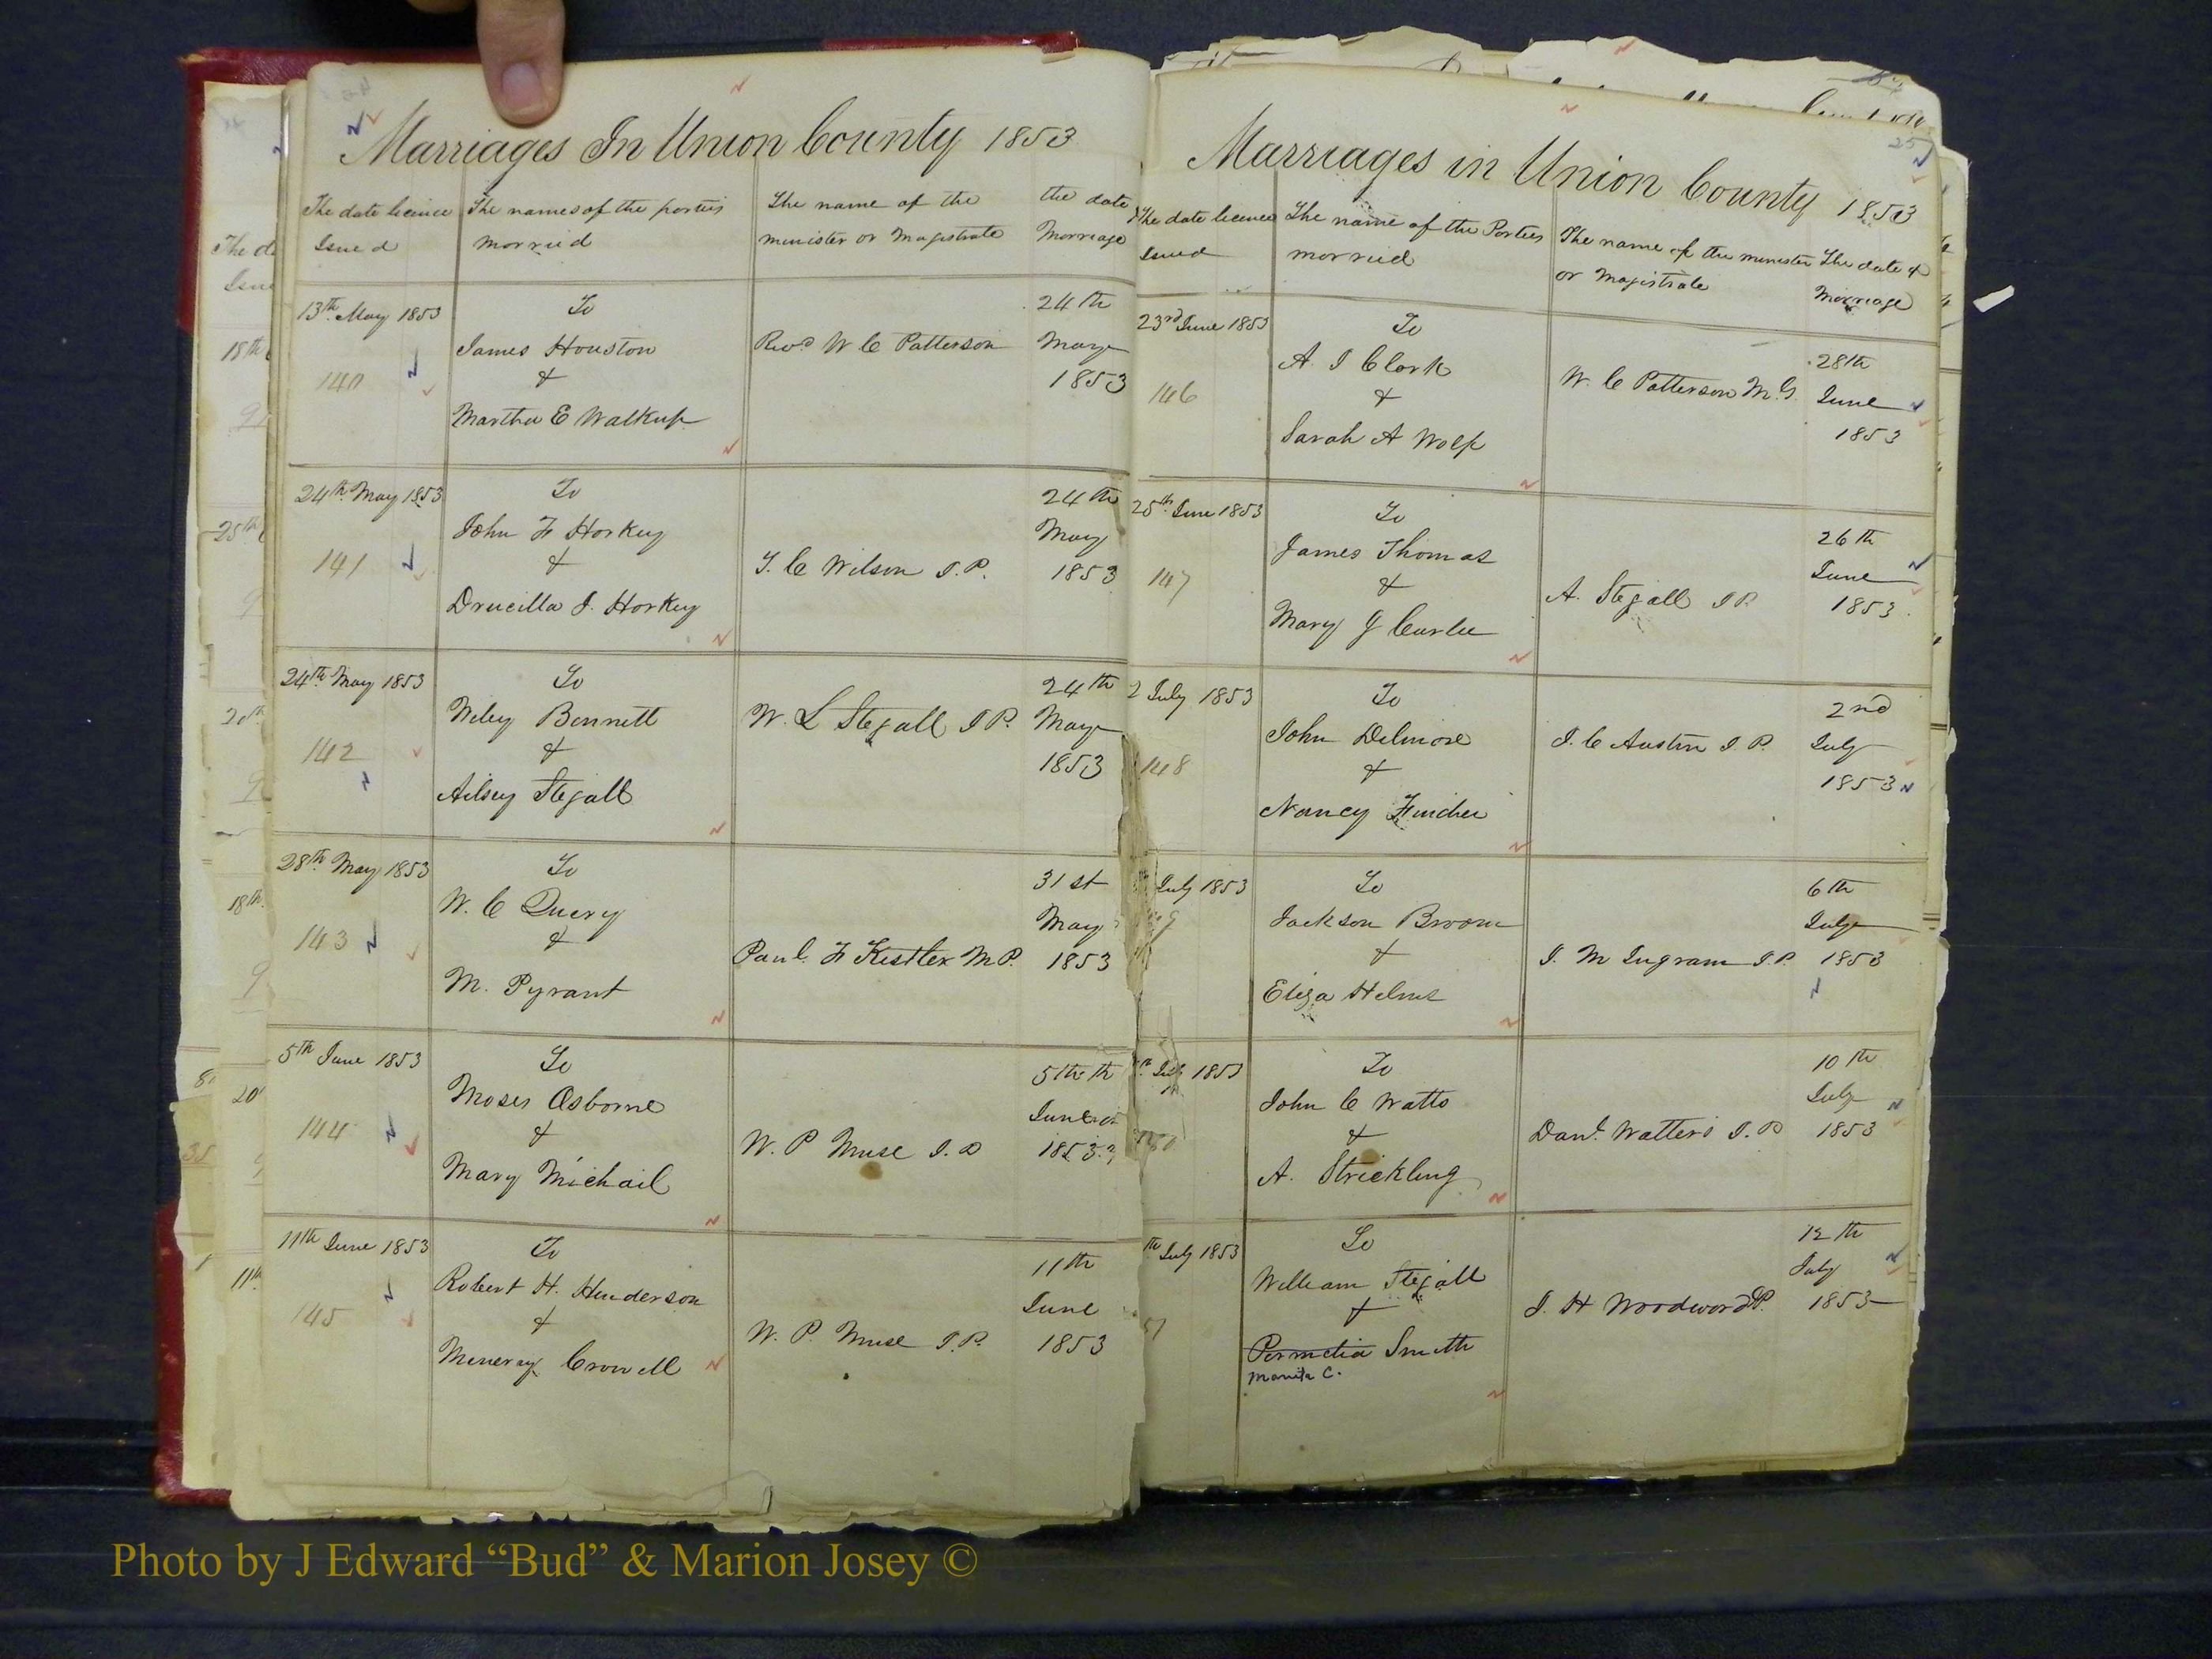 Marriages In Union County 1853
The date licence The names of the parties The name of the the date
Issued married minister or Magistrate Marriage
13th May 1853 To 24th
James Houston Revd W C Patterson May
140 & 1853
Martha E Walkup
24th May 1853 To 24th
John F Horkey May
141 & T. C Wilson J.P. 1853
Drucilla J. Horkey
24th May 1853 To 24th
Wiley Bennett W. L Stegall J P. May
142 & 1853
Ailsey Stegall
28th May 1853 To 31st
W. C Query May
143 & Paul. F Kistler M P. 1853
M. Pyrant
5th June 1853 To 5th th
Moses Osborne June
144 & W. P Muse J. P 1853
Mary Michail
11th June 1853 To 11th
Robert H. Henderson June
145 & W. P. Muse J.P. 1853
Minervy Crowell
Marriages in Union County 1853
25
The date licence The name of the Parties The name of the minister The date of
Issued married or Magistrate Marriage
23rd June 1853 To 28th
A. J Clark W. C Patterson M.G. June
146 & 1853
Sarah A Wolf
25th June 1853 To 26th
James Thomas June
147 & A. Stegall J P. 1853
Mary J Curlee
2 July 1853 To 2nd
John Delmore J. C Austin J. P. July
148 & 1853
Nancy Fincher
July 1853 To 6th
Jackson Broom July
& J. M Ingram J.P. 1853
Eliza Helms
July 1853 To 10th
John C Watts July
& Danl. Watters J. P 1853
A. Strickling
th July 1853 To 12th
William Stegall July
51 & J. H Woodward P. 1853
Permelia Smith
C.
Photo by J Edward “Bud” & Marion Josey ©